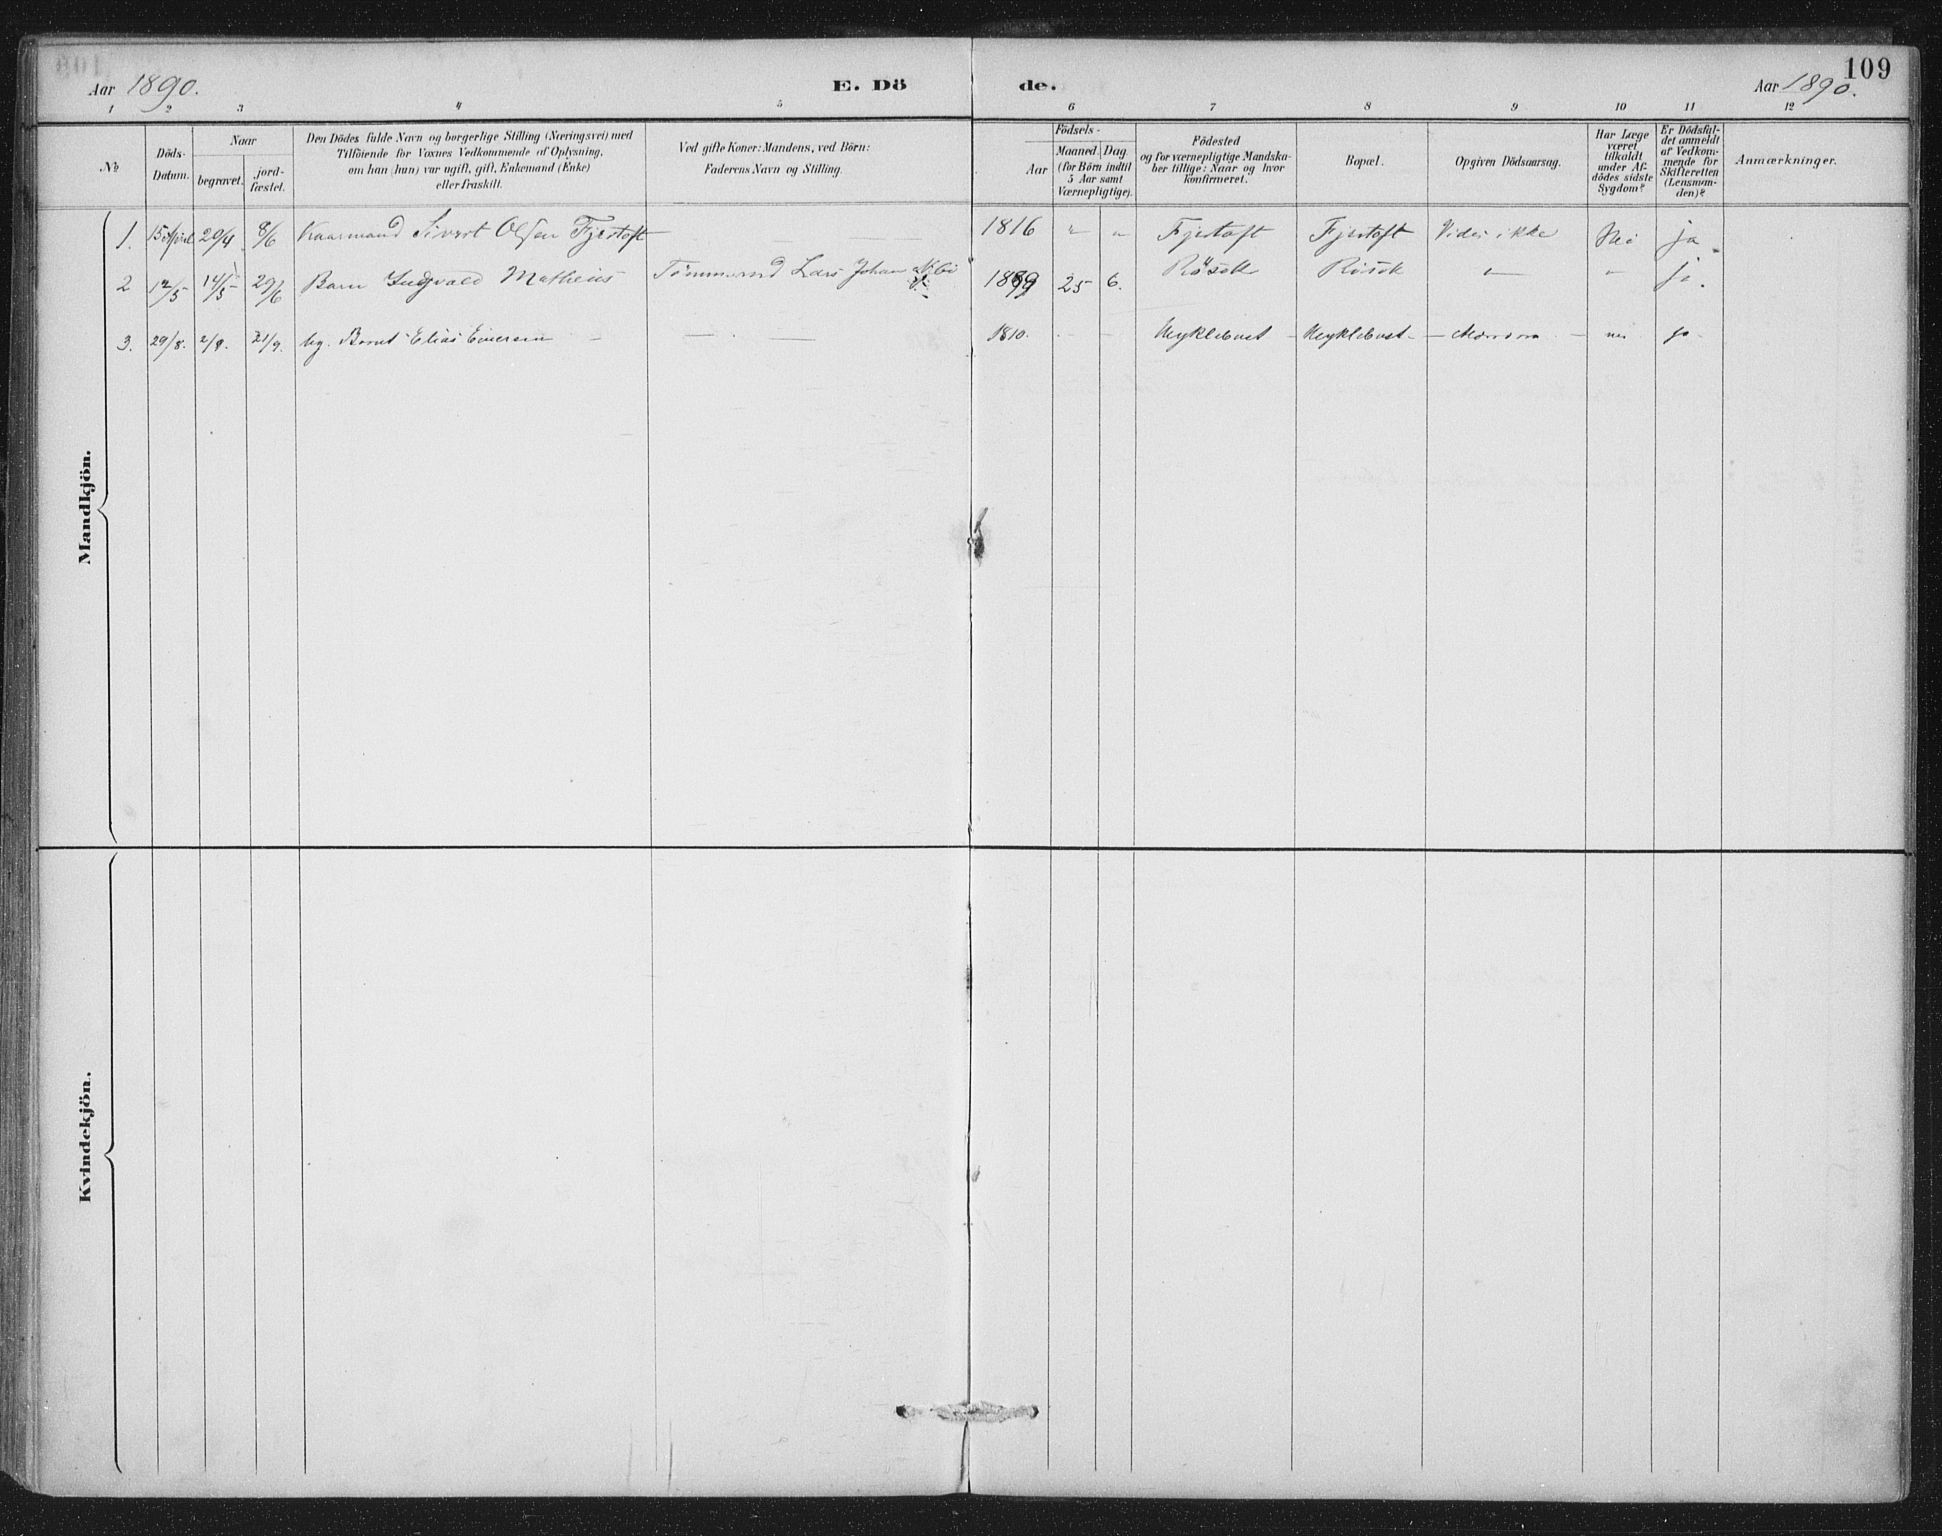 109
Aar 1890. E. Dö de. Aar 1890.
1 2 3 4 5 6 7 8 9 10 11 12
№
Döds-
Datum.
Naar
begravet.
jord-
fæstet.
Den Dödes fulde Navn og borgerlige Stilling (Næringsvei) med
Tilföiende for Voxnes Vedkommende af Oplysning,
om han (hun) var ugift, gift, Enkemand (Enke)
eller fraskilt.
Ved gifte Koner: Mandens, ved Börn:
Faderens Navn og Stilling.
Födsels-
Aar
Maaned. Dag.
(for Börn indtil
5 Aar samt
Værnepligtige).
Födested
og for værnepligtige Mandska-
ber tillige: Naar og hvor
konfirmeret.
Bopæl.
Opgiven Dödsaarsag.
Har Læge
været
tilkaldt
under Af-
dödes sidste
Sygdom?
Er Dödsfal-
det anmeldt
af Vedkom-
mende for
Skifteretten
(Lensman-
den)?
Anmærkninger.
Mandkjön.
1. 15 April 20/4 8/6 Kaarmand Sivert Olsen Fjertoft — — 1816 " " Fjertoft Fjertoft Vides ikke Nei ja.
2 12/5 14/5 29/6 Barn Ingvald Matheus Tømmermd Lars Johan 25 6. Røsok Røsok " " ja.
3. 29/8. 2/9. 21/9. Bernt Elias — — — 1810. — — Myklebust — Myklebust — — nei ja.
Kvindekjön.